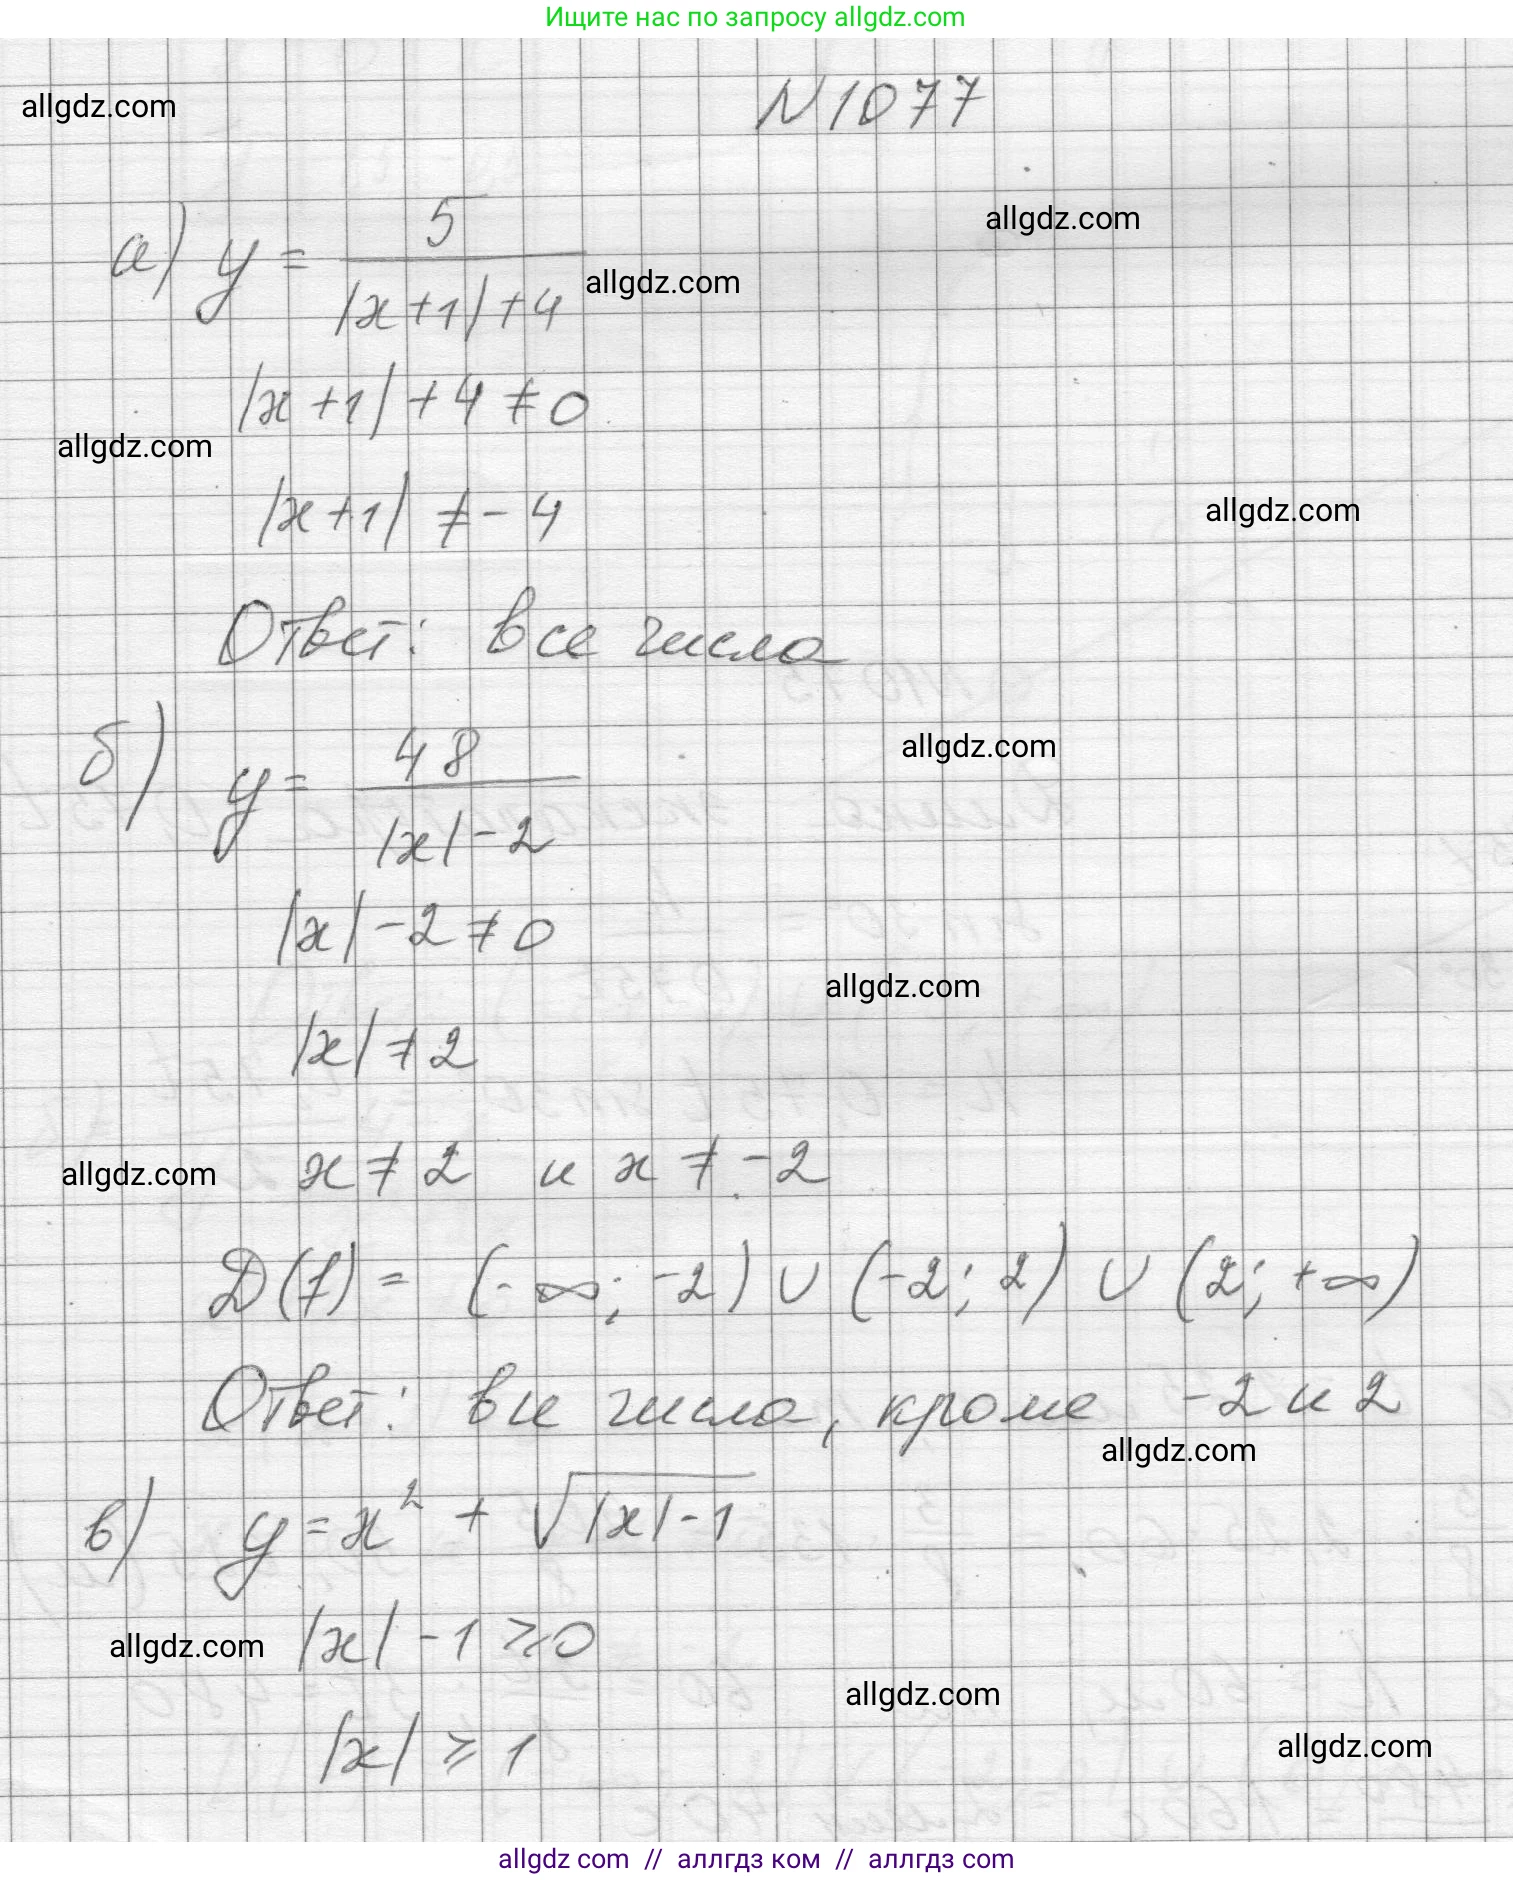 Ищите нас по запросу allgdz.com
allgdz.com
N 1077
allgdz.com
а) y = 5 / (|x+1|+4)
allgdz.com
|x+1|+4≠0
allgdz.com
|x+1| ≠ -4
allgdz.com
Ответ: все числа
б) y = 48 / (|x|-2)
allgdz.com
|x|-2≠0
allgdz.com
|x|≠2
allgdz.com
x≠2 и x≠-2
D(f) = (-∞; -2) ∪ (-2; 2) ∪ (2; +∞)
Ответ: все числа, кроме -2 и 2
allgdz.com
в) y = x² + √(|x|-1)
|x|-1≥0
allgdz.com
allgdz.com
|x| ≥ 1
allgdz.com
allgdz com // аллгдз ком // аллгдз com